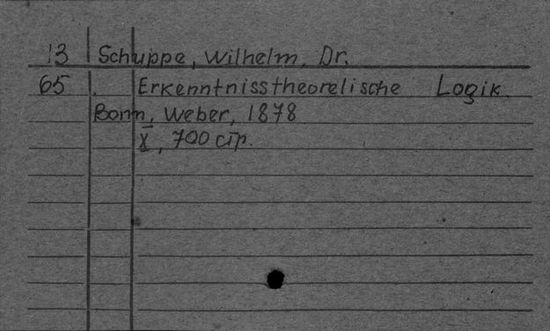 13 Schuppe, Wilhelm, Dr.
65 . Erkenntnisstheorelische Logik.
Bonn, Weber, 1878
X, 700 стр.